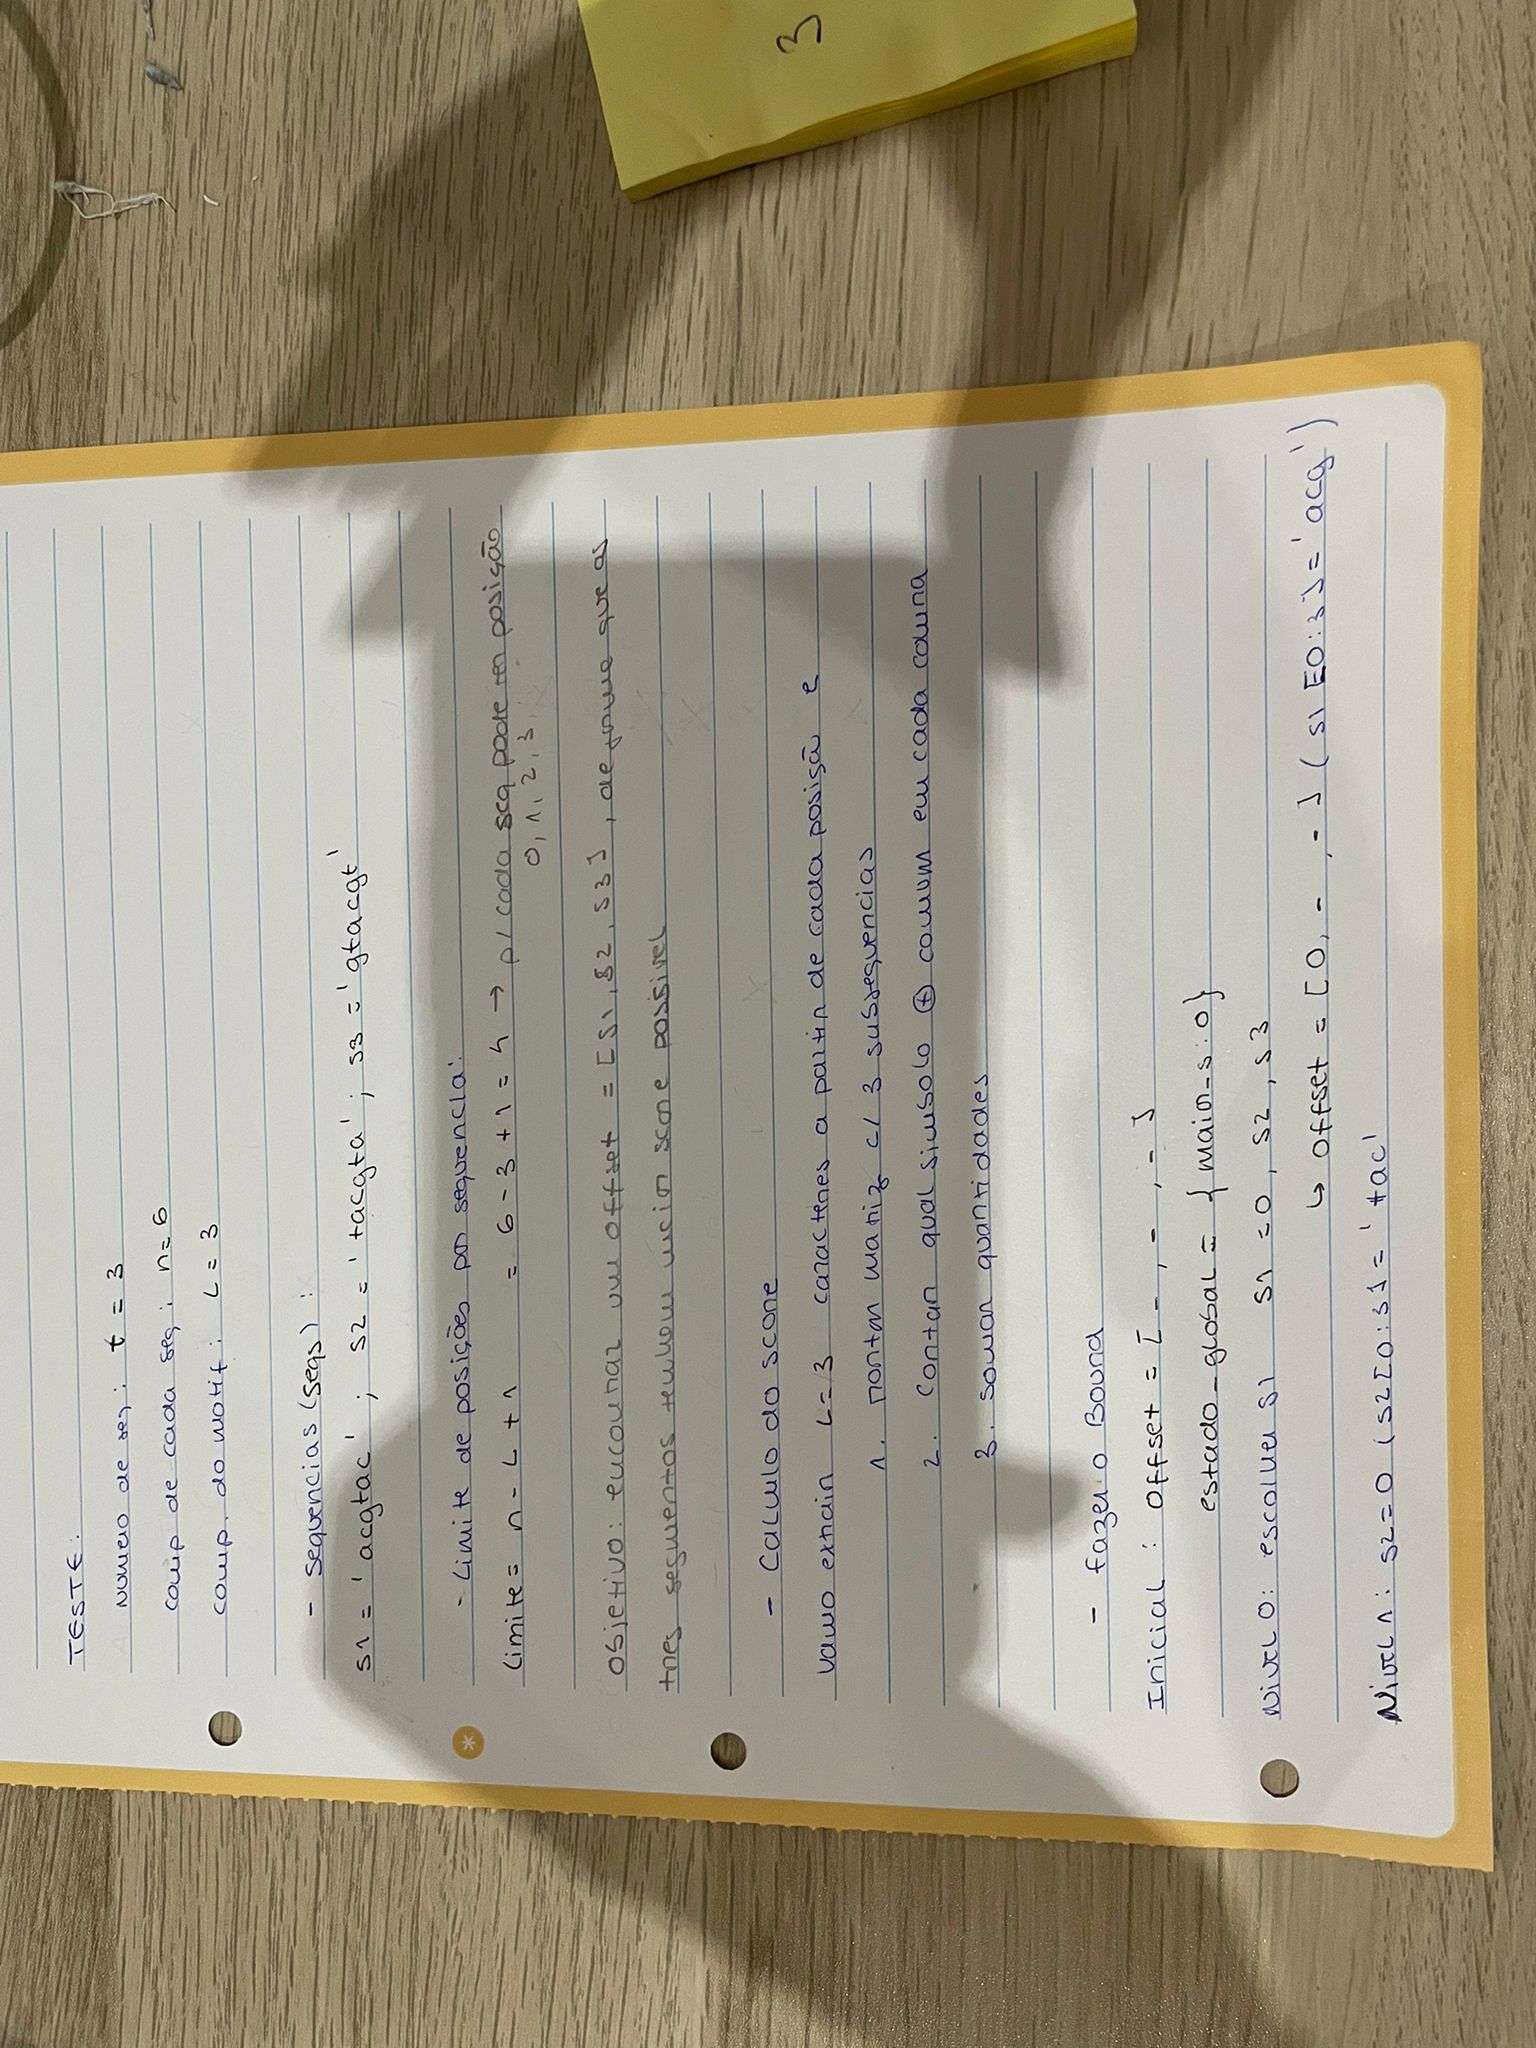 TESTE:
numero de seq: t = 3
comp de cada seq: n=6
comp. do motif: L = 3
- sequencias (seqs):
s1 = 'acgtac' ; s2 = 'tacgta' ; s3 = 'gtacgt'
- Limite de posições por sequencia:
Limite = n - L + 1 = 6 - 3 + 1 = 4 → p/ cada seq pode ter posição
0, 1, 2, 3
objetivo: encontrar um offset = [s1, s2, s3], de forma que as
tres segmentos tenham maior score possivel
- Calculo do score
vamo extrair L=3 caracteres a partir de cada posição e
1. montar matriz c/ 3 subsequencias
2. Contar qual simbolo ⊕ comum em cada coluna
3. somar quantidades
- fazer o Bound
Inicial : offset = [ -, -, - ]
estado-global = { maior_s: 0}
Nivel 0: escolher s1 s1 = 0, s2, s3
↳ offset = [0, -, -] (s1[0:3] = 'acg')
Nivel 1: s2=0 (s2[0:3] = 'tac'
3